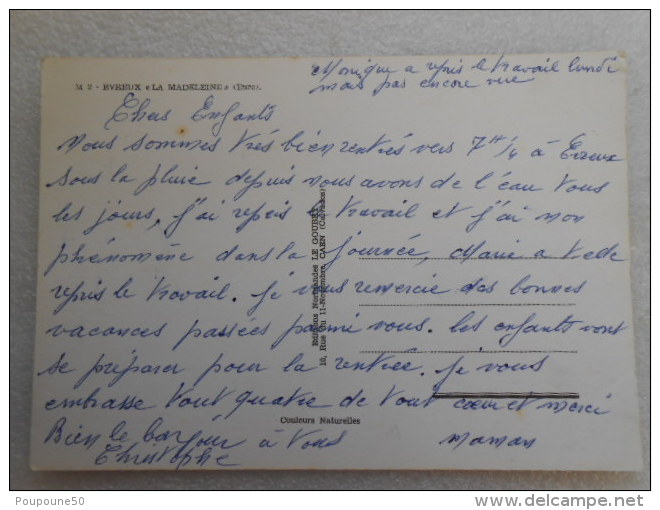 Monique a repris le travail lundi
mais pas encore vue
M 2 - EVREUX « LA MADELEINE » (Eure).
Chers Enfants
Nous sommes très bien rentrés vers 7H 1/4 à Evreux
sous la pluie depuis nous avons de l'eau tous
les jours, j'ai repris le travail et j'ai mon
phénomène dans la journée, Marie a t'elle
repris le travail. Je vous remercie des bonnes
vacances passées parmi vous. les enfants vont
se préparer pour la rentrée. Je vous
embrasse tout quatre de tout cœur et merci
Maman
Bien le bonjour à tous
Christophe
Editions Normandes LE GOUBEY
18, Rue du 11-Novembre, CAEN (Calvados)
Couleurs Naturelles
Poupoune50
delcampe.net